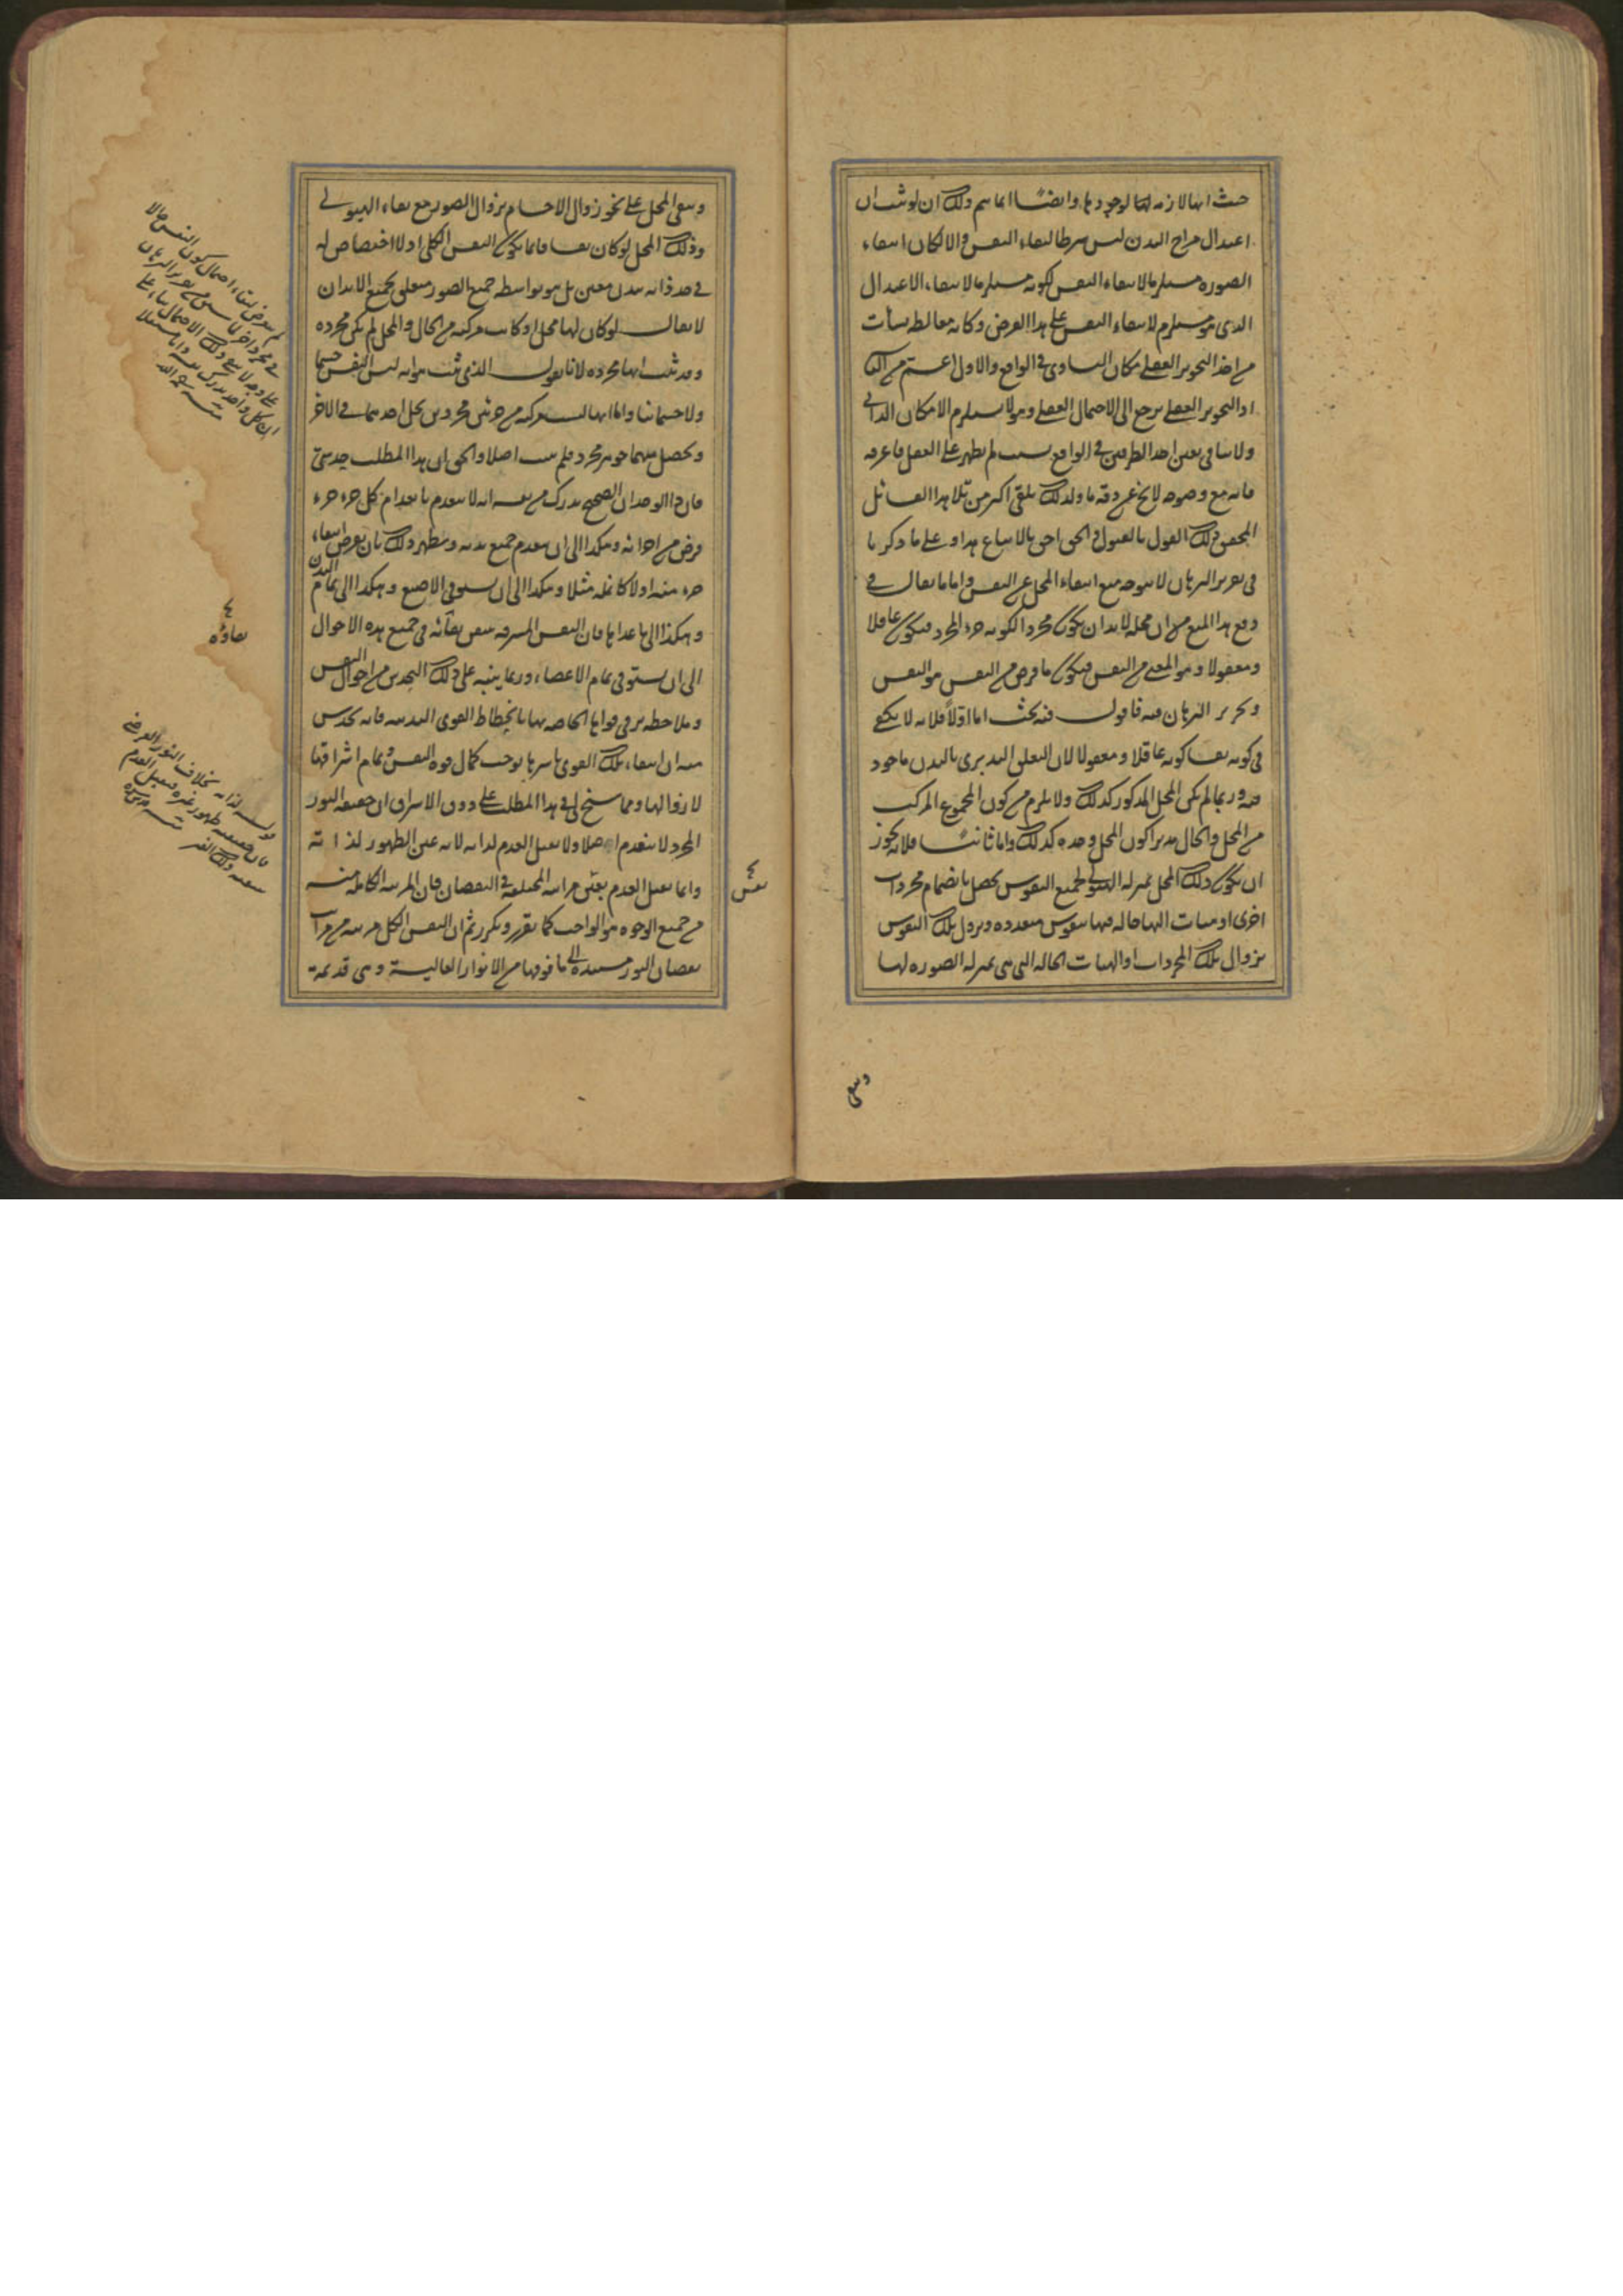 حيث انها لازمة لها لوجودها وايضا انما يتم ذلك ان لو ثبت ان
اعتدال مزاج البدن ليس شرطا لبقاء النفس والا لكان انتفاء
الصورة مستلزما لانتفاء النفس لكونه مستلزما لانتفاء الاعتدال
الذي هو مستلزم لانتفاء النفس على هذا الفرض وكانه مغالطة نشأت
من اخذ التجويز العقلي مكان التساوي في الواقع والاول اعم من الثاني
اذ التجويز العقلي يرجع الى الاحتمال العقلي وهو لا يستلزم الامكان الذاتي
ولا ينافي تعين احد الطرفين في الواقع بسبب لم يظهر على العقل فاعرفه
فانه مع وضوحه لا يخ عن دقة ما ولذلك تلقى اكثر من تلا هذا القائل
المحقق ذلك القول بالقبول والحق احق بالاتباع هذا وعلى ما ذكرنا
في تقرير البرهان لا يتوجه منع انتفاء المحل عن النفس واما ما يقال في
دفع هذا المنع من ان محله لابد ان يكون مجردا لكونه جزء المجرد فيكون عاقلا
ومعقولا وهو المعني من النفس فيكون ما فرض من النفس هو النفس
وتحرير البرهان فيه فاقول فيه بحث اما اولا فلانه لا يكفي
في كونه نفسا كونه عاقلا ومعقولا لان التعلق التدبيري بالبدن ماخوذ
فيه وربما لم يكن المحل المذكور كذلك ولا يلزم من كون المجموع المركب
من المحل والحال مدبرا كون المحل وحده كذلك واما ثانيا فلانه يجوز
ان يكون ذلك المحل بمنزلة الهيولى لجميع النفوس يحصل بانضمام مجردات
اخرى او هيئات اليها حالة فيها نفوس متعددة ويزول تلك النفوس
بزوال تلك المجردات او الهيئات الحالة التي هي بمنزلة الصورة لها
ويبقى
ويبقى المحل على نحو زوال الاجسام بزوال الصور مع بقاء الهيولى
وذلك المحل لو كان نفسا فانما يكون النفس الكلي اذ لا اختصاص له
في حد ذاته ببدن معين بل هو بواسطة جميع الصور متعلق بجميع الابدان
لا يقال لو كان لها محل لكانت مركبة من الحال والمحل فلم يكن مجردة
وقد ثبت انها مجردة لانا نقول الذي ثبت هو انه ليس النفس جسما
ولا جسمانيا واما انها ليست مركبة من جزئين مجردين يحل احدهما في الاخر
ويحصل منهما جوهر مجرد فلم يثبت اصلا والحق ان هذا المطلب حدسي
فان ذا الوجدان الصحيح يدرك من نفسه انه لا ينعدم بانعدام كل جزء جزء
فرض من اجزائه وهكذا الى ان ينعدم جميع بدنه ويظهر ذلك بان يفرض انتفاء
جزء منه اولا كانملة مثلا وهكذا الى ان يستوفي الاصبع وهكذا الى تمام البدن
وهكذا الى ما عداها فان النفس المشرقة تيقن بقائه في جميع هذه الاحوال
الى ان يستوفي تمام الاعضاء وربما ينبه على ذلك التحدس من احوال النفس
وملاحظة ترقي قواها الخاصة بها بانحطاط القوى البدنية فانه يحدس
منه ان انتفاء تلك القوى باسرها يوجب كمال قوة النفس وتمام اشراقها
لا زوالها ومما سنح لي في هذا المطلب على ذوق الاشراق ان حقيقة النور
المجرد لا ينعدم اصلا ولا يقبل العدم لذاته لانه عين الظهور لذاته
وانما يقبل العدم بعض مراتبه المختلفة في النقصان فان المرتبة الكاملة منه
من جميع الوجوه هو الواجب كما تقرر وتكرر ثم ان النفس الكل مرتبة من مراتب
نقصان النور مستندة الى ما فوقها من الانوار العالية وهي قديمة
بقاؤه
بعض